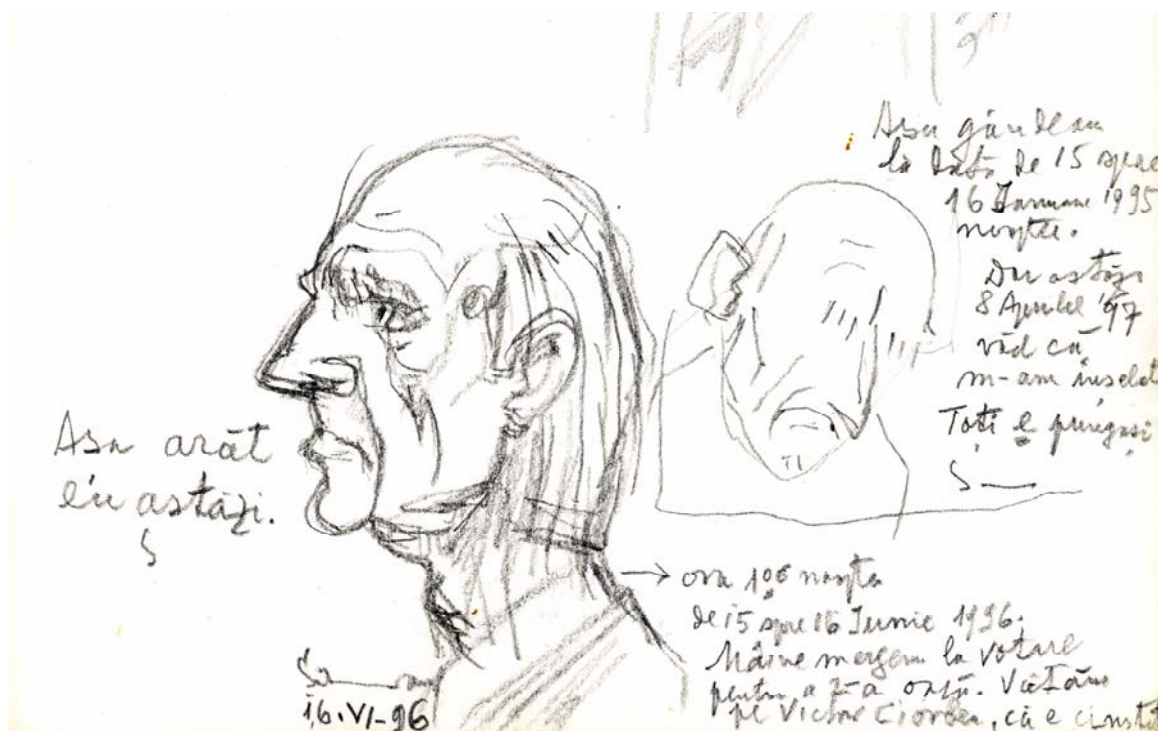 Asa arăt
eu astăzi.
S
16.VI-96
Asa gândeam
la data de 15 spre
16 Ianuarie 1995
noaptea.
astăzi
8 Aprilie '97
văd că
m-am înselat
Toți e pungași
S
→ ora 1 06 noaptea
de 15 spre 16 Iunie 1996.
Mâine mergem la votare
pentru a 2-a oară.
pe Victor Ciorbea, că e cinstit